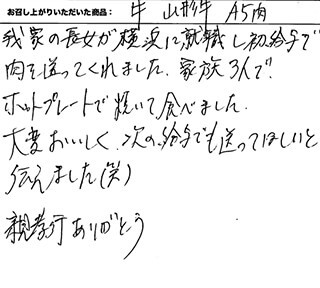 お召し上がりいただいた商品： 牛 山形牛 A5肉
我家の長女が横浜に就職し初給与で
肉を送ってくれました、家族3人で、
ホットプレートで焼いて食べました.
大変おいしく、次の、給与でも送ってほしいと
伝えました(笑)
親孝行ありがとう